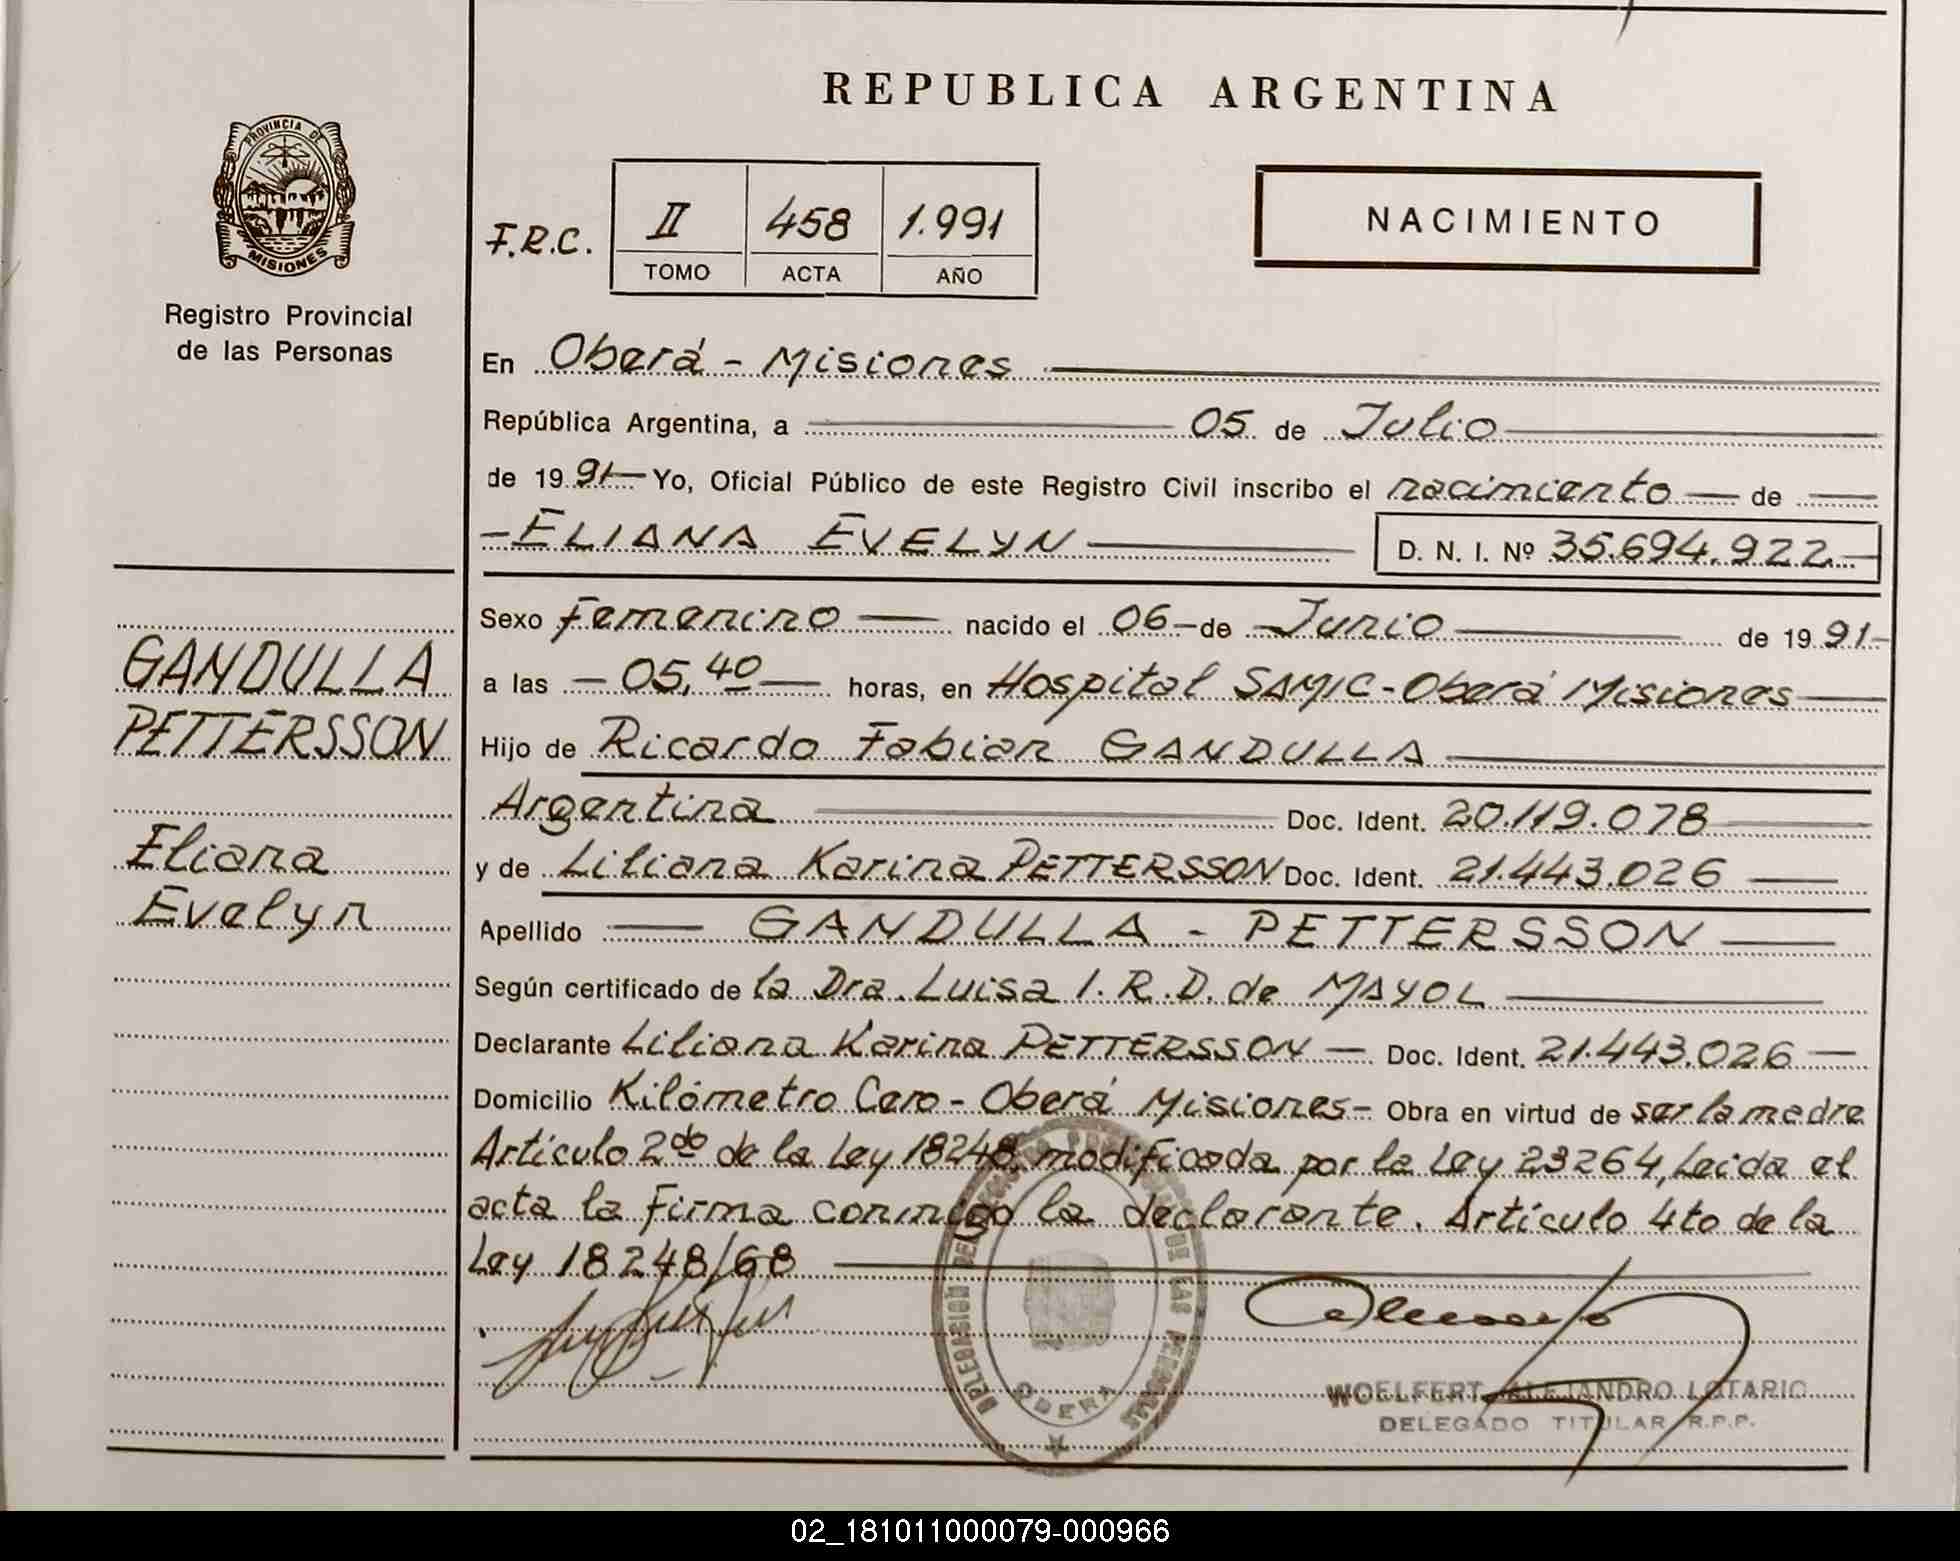 REPUBLICA ARGENTINA
PROVINCIA DE
MISIONES
Registro Provincial
de las Personas
F.R.C.
II 458 1.991
TOMO ACTA AÑO
NACIMIENTO
En Oberá - Misiones
República Argentina, a 05 de Julio
de 1991 Yo, Oficial Público de este Registro Civil inscribo el nacimiento de
ELIANA EVELYN D. N. I. Nº 35.694.922
Sexo Femenino nacido el 06 de Junio de 1991
GANDULLA
PETTERSSON
Eliana
Evelyn
a las 05,40 horas, en Hospital SAMIC - Oberá Misiones
Hijo de Ricardo Fabian GANDULLA
Argentina Doc. Ident. 20.119.078
y de Liliana Karina PETTERSSON Doc. Ident. 21.443.026
Apellido GANDULLA - PETTERSSON
Según certificado de la Dra. Luisa I. R. D. de MAYOL
Declarante Liliana Karina PETTERSSON Doc. Ident. 21.443.026
Domicilio Kilómetro Cero - Oberá Misiones - Obra en virtud de ser la madre
Artículo 2do de la Ley 18248, modificada por la Ley 23264, Leida el
acta la firma conmigo la declarante. Artículo 4to de la
Ley 18248/68
DELEGACION DE LAS PERSONAS
OBERA
WOELFERT ALEJANDRO LOTARIO
DELEGADO TITULAR R.P.P.
02_181011000079-000966